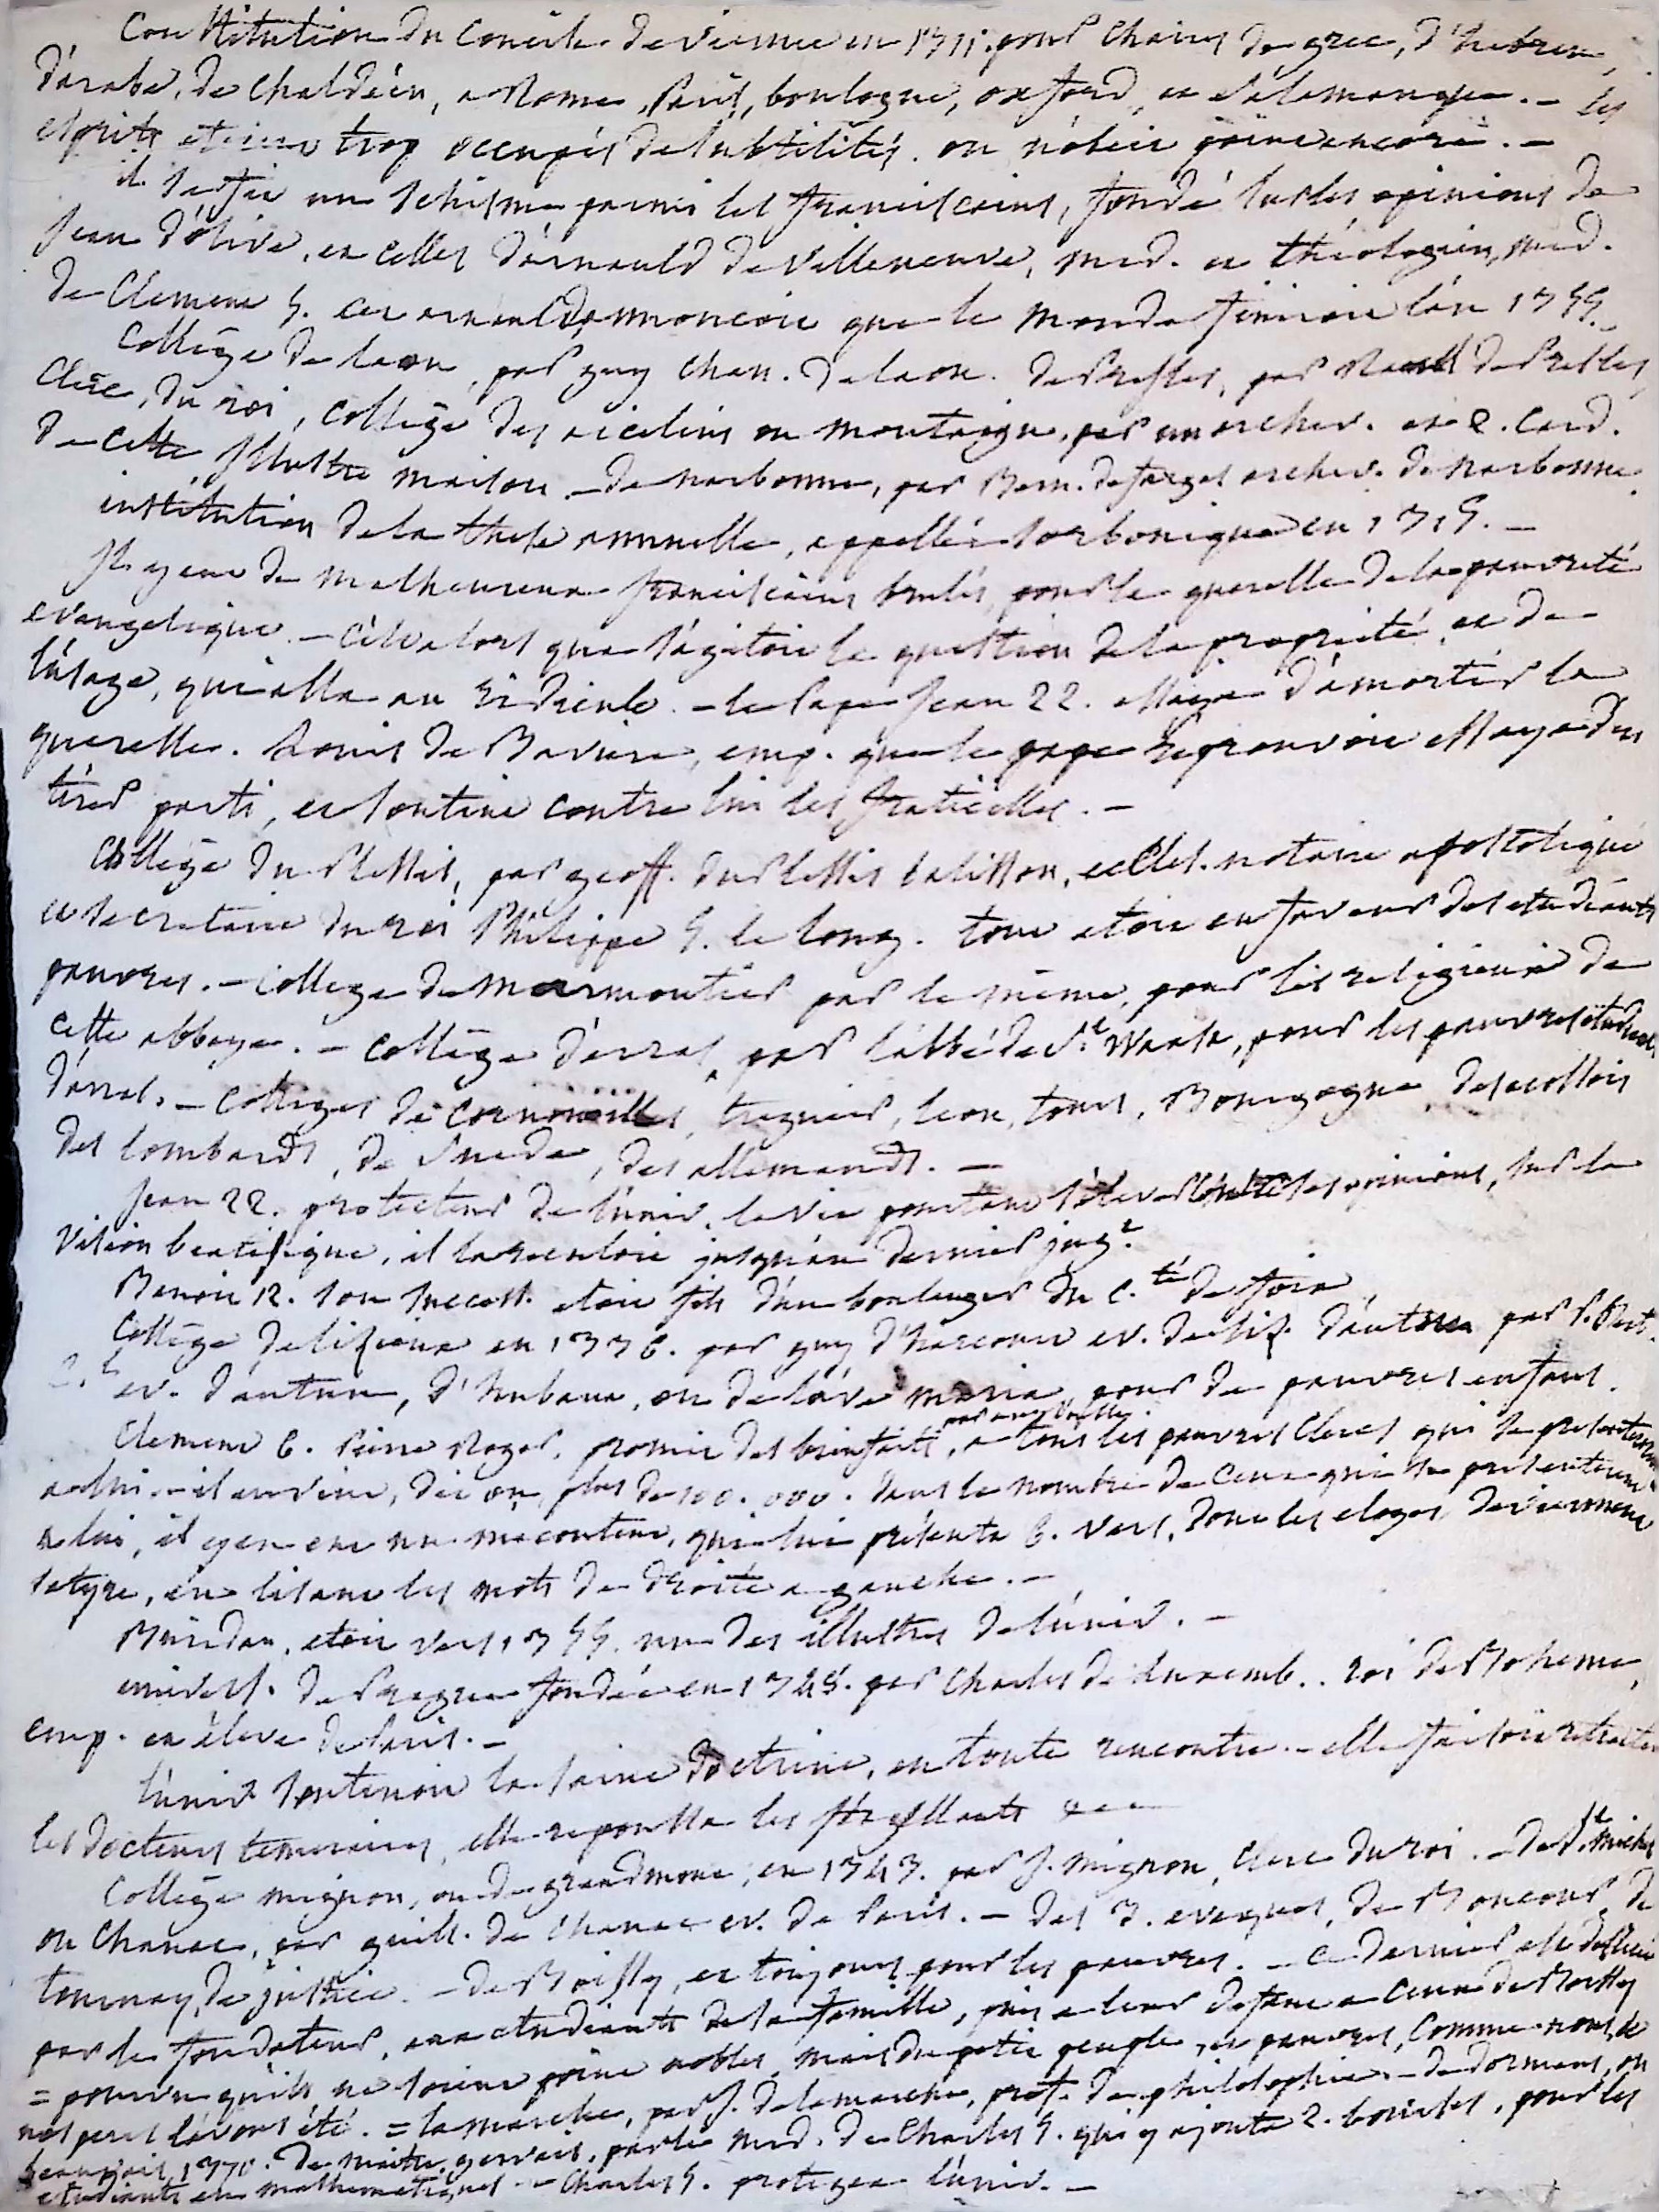 Constitution du Concile de vienne en 1311. pour chaires de grec, d'hebreu,
d'arabe, de Chaldéen, a Rome, Paris, boulogne, oxford, et Salamanque. – les
esprits etoient trop occupés de subtilités. on n'obéit point encore. –
il se fit un schisme parmi les franciscains, fondé sur les opinions de
Jean d'olive, et celles d'arnauld de Villeneuve, med. et théologien, med.
de Clement 5. cet arnauld annoncoit que le monde finiroit l'an 1355.
Collège de laon, par guy chan. de laon. de Presles, par Raoul de Presles,
Clerc, du roi, Collège des aicelins ou montaigu, par un archev. et 2. Card.
de cette illustre maison. – de narbonne, par Bern. de farges archev. de narbonne.
institution de la these annuelle, appellée sorbonique en 1315. –
Il y eut de malheureux franciscains brulés, pour la querelle de la pauvreté
evangelique. – C'est alors que s'agitoit la question de la propriété, et de
l'usage, qui alla au ridicule. – le Pape Jean 22. essaya d'amortir la
querelle. Louis de Baviere, emp. que le pape reprouvoit essaya d'en
tirer parti, et soutint contre lui les fraticelles. –
Collège du Plessis, par geoff. du Plessis balisson, eccles. notaire apostolique
et secretaire du roi Philippe 5. le long. tout etoit en faveur des etudiants
pauvres. – College de Marmoutier par le même, pour les religieux de
cette abbaye. – Collège d'arras, par l'abbé de St. Waast, pour les pauvres etudiants
d'arras. – Colleges de Cornouailles, treguier, leon, tours, Bourgogne, des ecossois
des lombards, de Suede, des allemands. –
Jean 22. protecteur de l'univ. la vit pourtant s'élever contre ses opinions, sur la
vision beatifique, il la reculoit jusqu'au dernier jugt.
Benoit 12. son success. etoit fils d'un boulanger du C.té de foix,
Collège de lizieux en 1336. par guy d'harcourt ev. de liz. d'autun par P. Bert.
ev. d'autun, d'hubant, ou de l'ave maria, pour de pauvres enfans.
Clement 6. Pierre Roger, promit des bienfaits, par une bulle a tous les pauvres Clercs qui se presenteroient
a lui. – il en vint, dit on, plus de 100.000. dans le nombre de ceux qui se presenterent
a lui, il y en eut un mécontent, qui lui présenta 6. vers, dont les eloges deviennent
satyre, en lisant les mots de droite a gauche. –
Buridan, etoit vers 1355. un des illustres de l'univ. –
univers. de Prague fondée en 1348. par Charles de Luxemb.. roi de Boheme,
emp. et éleve de Paris. –
l'univ. soutenoit la saine doctrine, en toute rencontre. – elle faisoit retracter
les docteurs temeraires, elle repoussa les flagellants
Collège mignon, ou de grandmont, en 1343. par J. mignon, clerc du roi. – de St. michel
ou Chanac, par guill. de Chanac ev. de Paris. – des 3. evêques, de Boncour, de
tournay, de justice. – de Boissy, et toujours pour les pauvres. – Ce dernier est destiné
par le fondateur, aux etudiants de sa famille, puis a leur defaut a ceux de Boissy
= pourvu qu'ils ne soient point nobles, mais du petit peuple, et pauvres, Comme nous, et
nos peres l'avons été. = la marche, par J. de la marche, prof. de philosophie. – de dormans, ou
beauvais, 1370. de maitre gervais, par le med. de Charles 5. qui y ajouta 2. bourses, pour les
etudiants en mathematiques – Charles 5. protegea l'univ. –